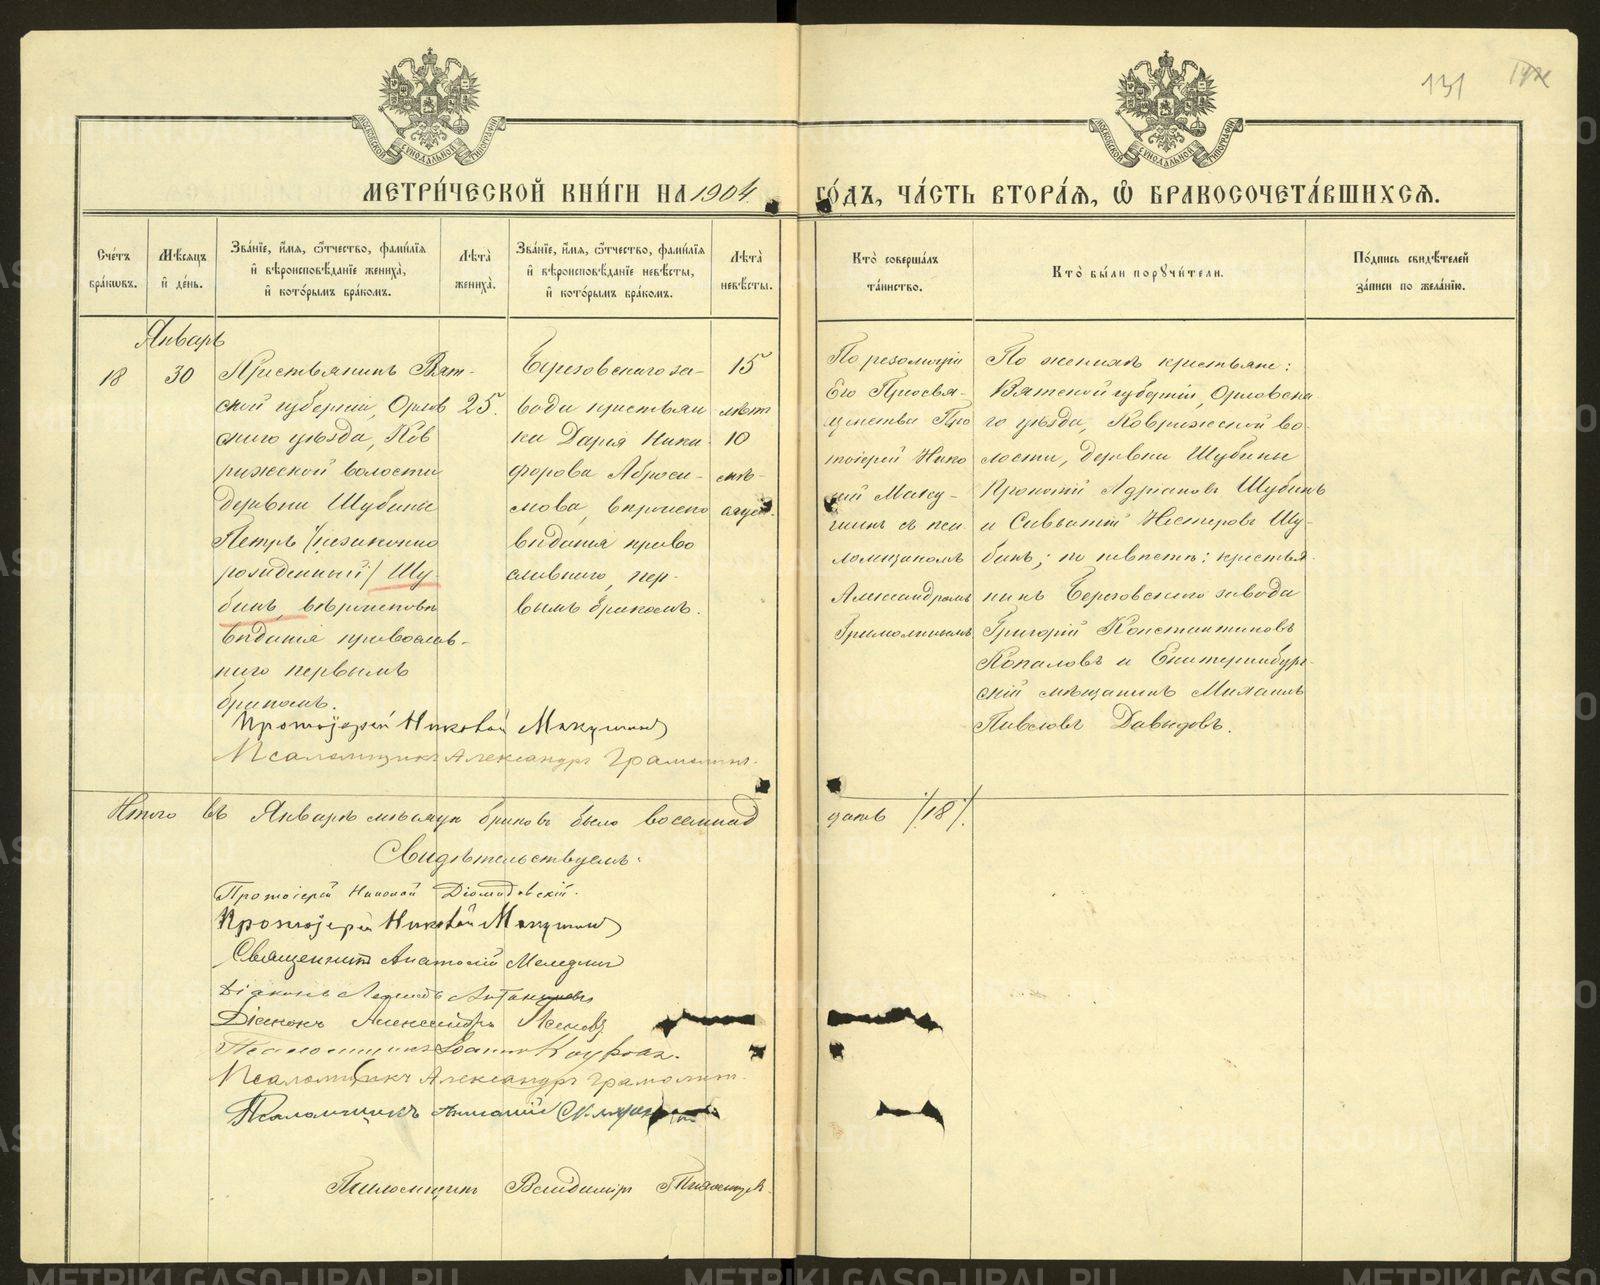 131
МОСКОВСКОЙ СѴНОДАЛЬНОЙ ТИПОГРАФІИ
МОСКОВСКОЙ СѴНОДАЛЬНОЙ ТИПОГРАФІИ
МЕТРИ́ЧЕСКОЙ КНИ́ГИ НА 1904 ГО́ДЪ, ЧА́СТЬ ВТОРА́Я, Ѽ БРАКОСОЧЕТА́ВШИХСЯ.
Сче́тъ бра́ковъ.
Мѣ́сяцъ и҆ де́нь.
Зва́нїе, и҆́мя, ѻ҆́тчество, фами́лїя
и҆ вѣроисповѣ́данїе жениха̀,
и҆ кото́рымъ бра́комъ.
Лѣта̀ жениха̀.
Зва́нїе, и҆́мя, ѻ҆́тчество, фами́лїя
и҆ вѣроисповѣ́данїе невѣ́сты,
и҆ кото́рымъ бра́комъ.
Лѣта̀ невѣ́сты.
Кто̀ соверша́лъ та́инство.
Кто̀ бы́ли поручи́тели.
По́дпись свидѣ́телей за́писи по жела́нїю.
Январь
18
30
Крестьянинъ Вят-
ской губерніи, Орлов
скаго уѣзда, Ков
рижской волости
деревни Шубины
Петръ /незаконно
рожденный/ Шу-
бинъ, вѣроиспов
ѣданія православ-
наго первымъ
бракомъ.
25.
Березовскаго за-
вода крестьян
ка Дарія Ники-
форова Аброси-
мова, вѣроиспо
вѣданія право
славнаго, пер-
вымъ бракомъ.
15
лѣтъ
10
мѣ-
сяцев.
По резолюціи
Его Преосвя-
щенства Про
тоіерей Нико
лай Маку-
шинъ съ пса
ломщикомъ
Александромъ
Грамолинымъ
По женихѣ крестьяне:
Вятской губерніи, Орловска
го уѣзда, Коврижской во-
лости, деревни Шубины
Прокопій Адріановъ Шубинъ
и Савватій Нестеровъ Шу-
бинъ; по невѣстѣ: крестья-
нинъ Березовскаго завода
Григорій Константиновъ
Копаловъ и Екатеринбург-
скій мѣщанинъ Михаилъ
Павловъ Давыдовъ.
Протоіерей Николай Макушинъ
Псаломщикъ Александръ Грамолинъ.
Итого въ Январѣ мѣсяцѣ браковъ было восемнад
цать /18/.
Свидѣтельствуемъ:
Протоіерей Николай Діомидовскій.
Протоіерей Николай Макушинъ
Священникъ Анатолій
Діаконъ
Діаконъ Александръ
Псаломщикъ
Псаломщикъ Александръ Грамолинъ.
Псаломщикъ
Псаломщикъ Владиміръ
METRIKI.GASO-URAL.RU